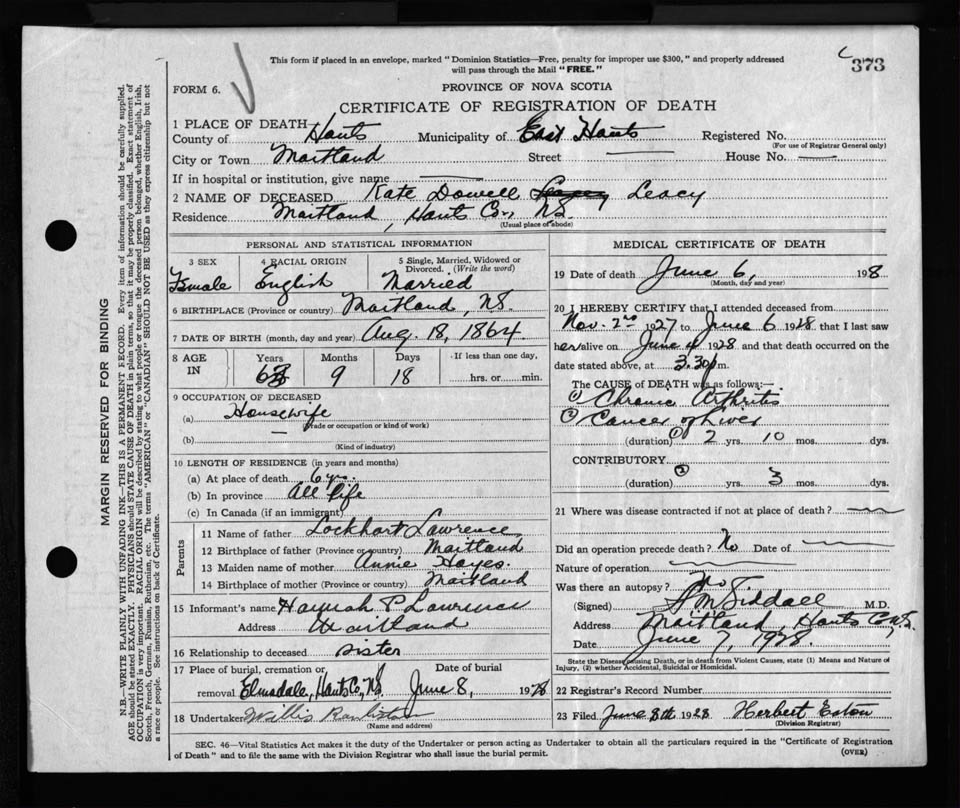 This form if placed in an envelope, marked "Dominion Statistics—Free, penalty for improper use $300," and properly addressed
will pass through the Mail "FREE."
373
FORM 6.
PROVINCE OF NOVA SCOTIA
CERTIFICATE OF REGISTRATION OF DEATH
1 PLACE OF DEATH
County of Hants Municipality of East Hants Registered No.
(For use of Registrar General only)
City or Town Maitland Street — House No. —
If in hospital or institution, give name —
2 NAME OF DECEASED Kate Dowell Leacy
Residence Maitland, Hants Co., N.S.
(Usual place of abode)
PERSONAL AND STATISTICAL INFORMATION
3 SEX 4 RACIAL ORIGIN 5 Single, Married, Widowed or
Divorced. (Write the word)
Female English Married
6 BIRTHPLACE (Province or country) Maitland, N.S.
7 DATE OF BIRTH (month, day and year) Aug. 18, 1864
8 AGE IN Years Months Days If less than one day,
63 9 18 hrs. or min.
9 OCCUPATION OF DECEASED
(a) Housewife
(Trade or occupation or kind of work)
(b) —
(Kind of industry)
10 LENGTH OF RESIDENCE (in years and months)
(a) At place of death 6 yrs.
(b) In province All life
(c) In Canada (if an immigrant)
Parents
11 Name of father Lockhart Lawrence
12 Birthplace of father (Province or country) Maitland
13 Maiden name of mother Annie Hayes.
14 Birthplace of mother (Province or country) Maitland
15 Informant's name Hannah P. Lawrence
Address Maitland
16 Relationship to deceased Sister
17 Place of burial, cremation or Date of burial
removal Elmsdale, Hants Co., N.S. June 8, 1928
18 Undertaker Willis
(Name and address)
MEDICAL CERTIFICATE OF DEATH
19 Date of death June 6, 1928
(Month, day and year)
20 I HEREBY CERTIFY that I attended deceased from
Nov. 2nd 1927 to June 6 1928 that I last saw
her alive on June 4 1928 and that death occurred on the
date stated above, at 3.30 p.m.
The CAUSE of DEATH was as follows:—
(1) Chronic Arthritis
(2) Cancer of Liver
(duration) (1) 2 yrs. 10 mos. dys.
CONTRIBUTORY
(duration) (2) yrs. 3 mos. dys.
21 Where was disease contracted if not at place of death?
Did an operation precede death? No Date of
Nature of operation
Was there an autopsy? No
(Signed) Siddall M.D.
Address Maitland, Hants Co. N.S.
Date June 7, 1928.
State the Disease causing Death, or in death from Violent Causes, state (1) Means and Nature of
Injury, (2) whether Accidental, Suicidal or Homicidal.
22 Registrar's Record Number
23 Filed June 8th 1928 Herbert Eaton
(Division Registrar)
SEC. 46—Vital Statistics Act makes it the duty of the Undertaker or person acting as Undertaker to obtain all the particulars required in the "Certificate of Registration
of Death" and to file the same with the Division Registrar who shall issue the burial permit.
(OVER)
MARGIN RESERVED FOR BINDING
N.B.—WRITE PLAINLY WITH UNFADING INK—THIS IS A PERMANENT RECORD. Every item of information should be carefully supplied.
AGE should be stated EXACTLY. PHYSICIANS should STATE CAUSE OF DEATH in plain terms, so that it may be properly classified. Exact statement of
OCCUPATION is very important. RACIAL ORIGIN will be described by stating to what people or tongue the deceased person belonged, whether English, Irish,
Scotch, French, German, Russian, Ruthenian, etc. The terms "AMERICAN" or "CANADIAN" SHOULD NOT BE USED as they express citizenship but not
a race or people. See instructions on back of Certificate.